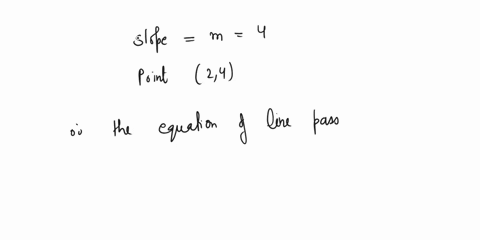 slope = m = 4
Point (2,4)
∴ the equation of line pass